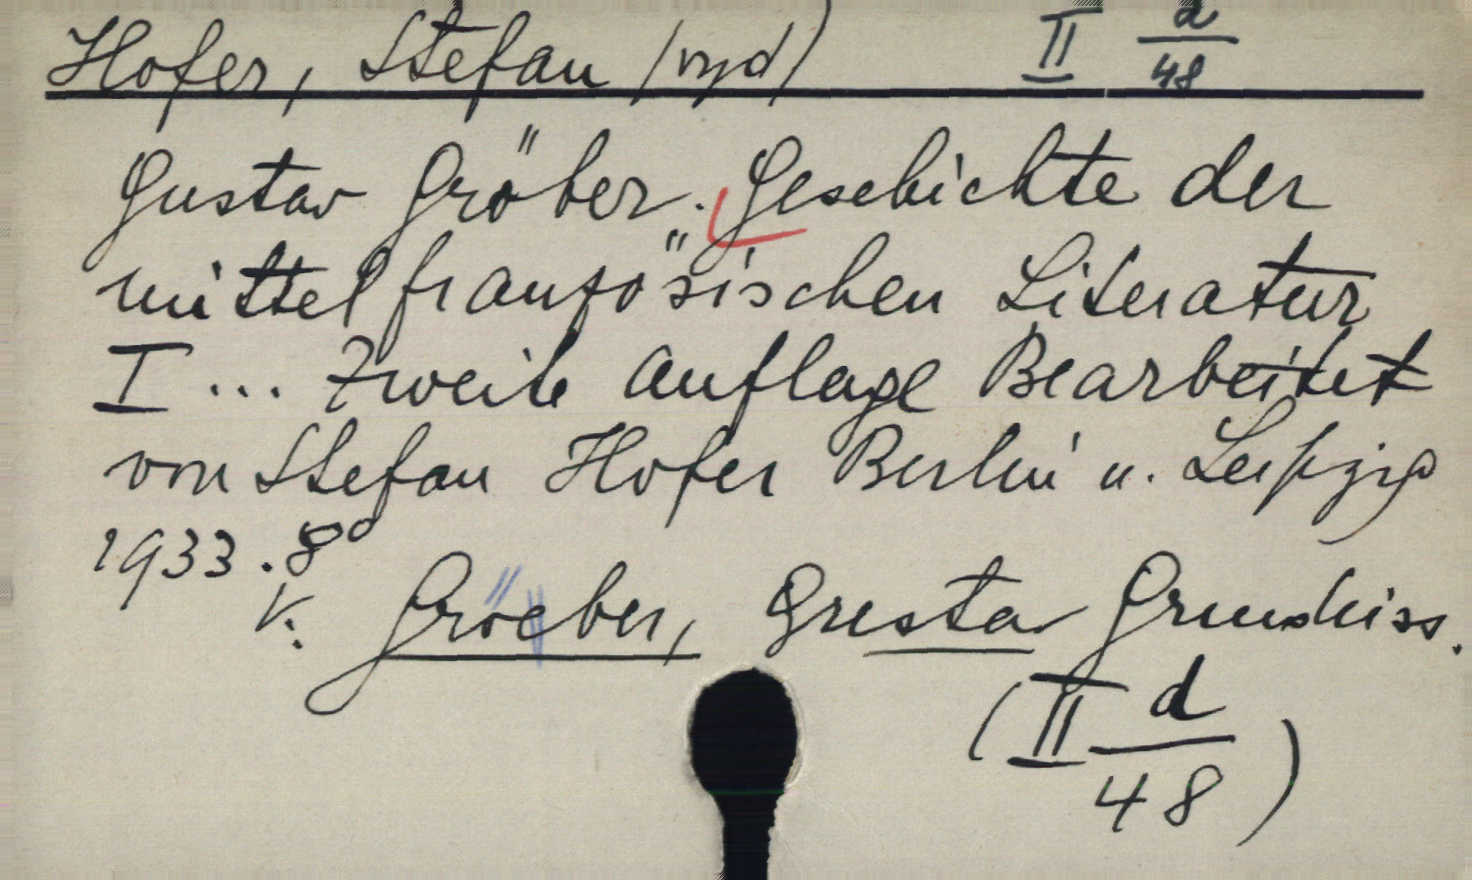 Hofer, Stefan (vyd) II d/48
Gustav Gröber. Geschichte der
mittelfranzösischen Literatur
I ... Zweite Auflage Bearbeitet
von Stefan Hofer Berlin u. Leipzig
1933. 8°
V. Gröeber, Gustav Grundriss.
(II d/48)